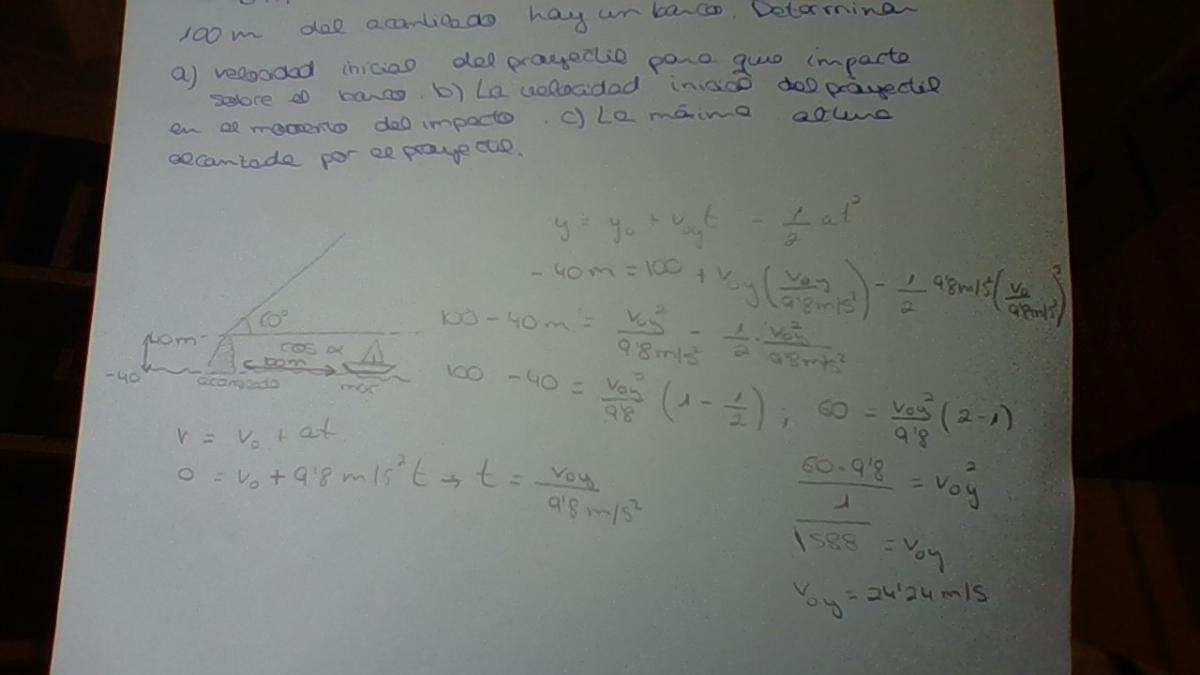 100m del acantilado hay un barco. Determinar
a) velocidad inicial del proyectil para que impacte
sobre el barco. b) La velocidad inicial del proyectil
en el momento del impacto. c) La máxima altura
alcanzada por el proyectil.
y = y₀ + v₀yt - 1/2 at²
-40m = 100 + v₀y(v₀y/9'8m/s²) - 1/2 9'8m/s²(v₀/9'8m/s²)²
100 - 40m = v₀y²/9'8m/s² - 1/2 · v₀y²/9'8m/s²
100 - 40 = v₀y²/9'8 (1 - 1/2) ; 60 = v₀y²/9'8 (2-1)
60·9'8/1 = v₀y²
√588 = v₀y
v₀y = 24'24 m/s
60°
40m
cos α
100m
-40
acantilado
mar
v = v₀ + at
0 = v₀ + 9'8 m/s² t → t = v₀y/9'8m/s²